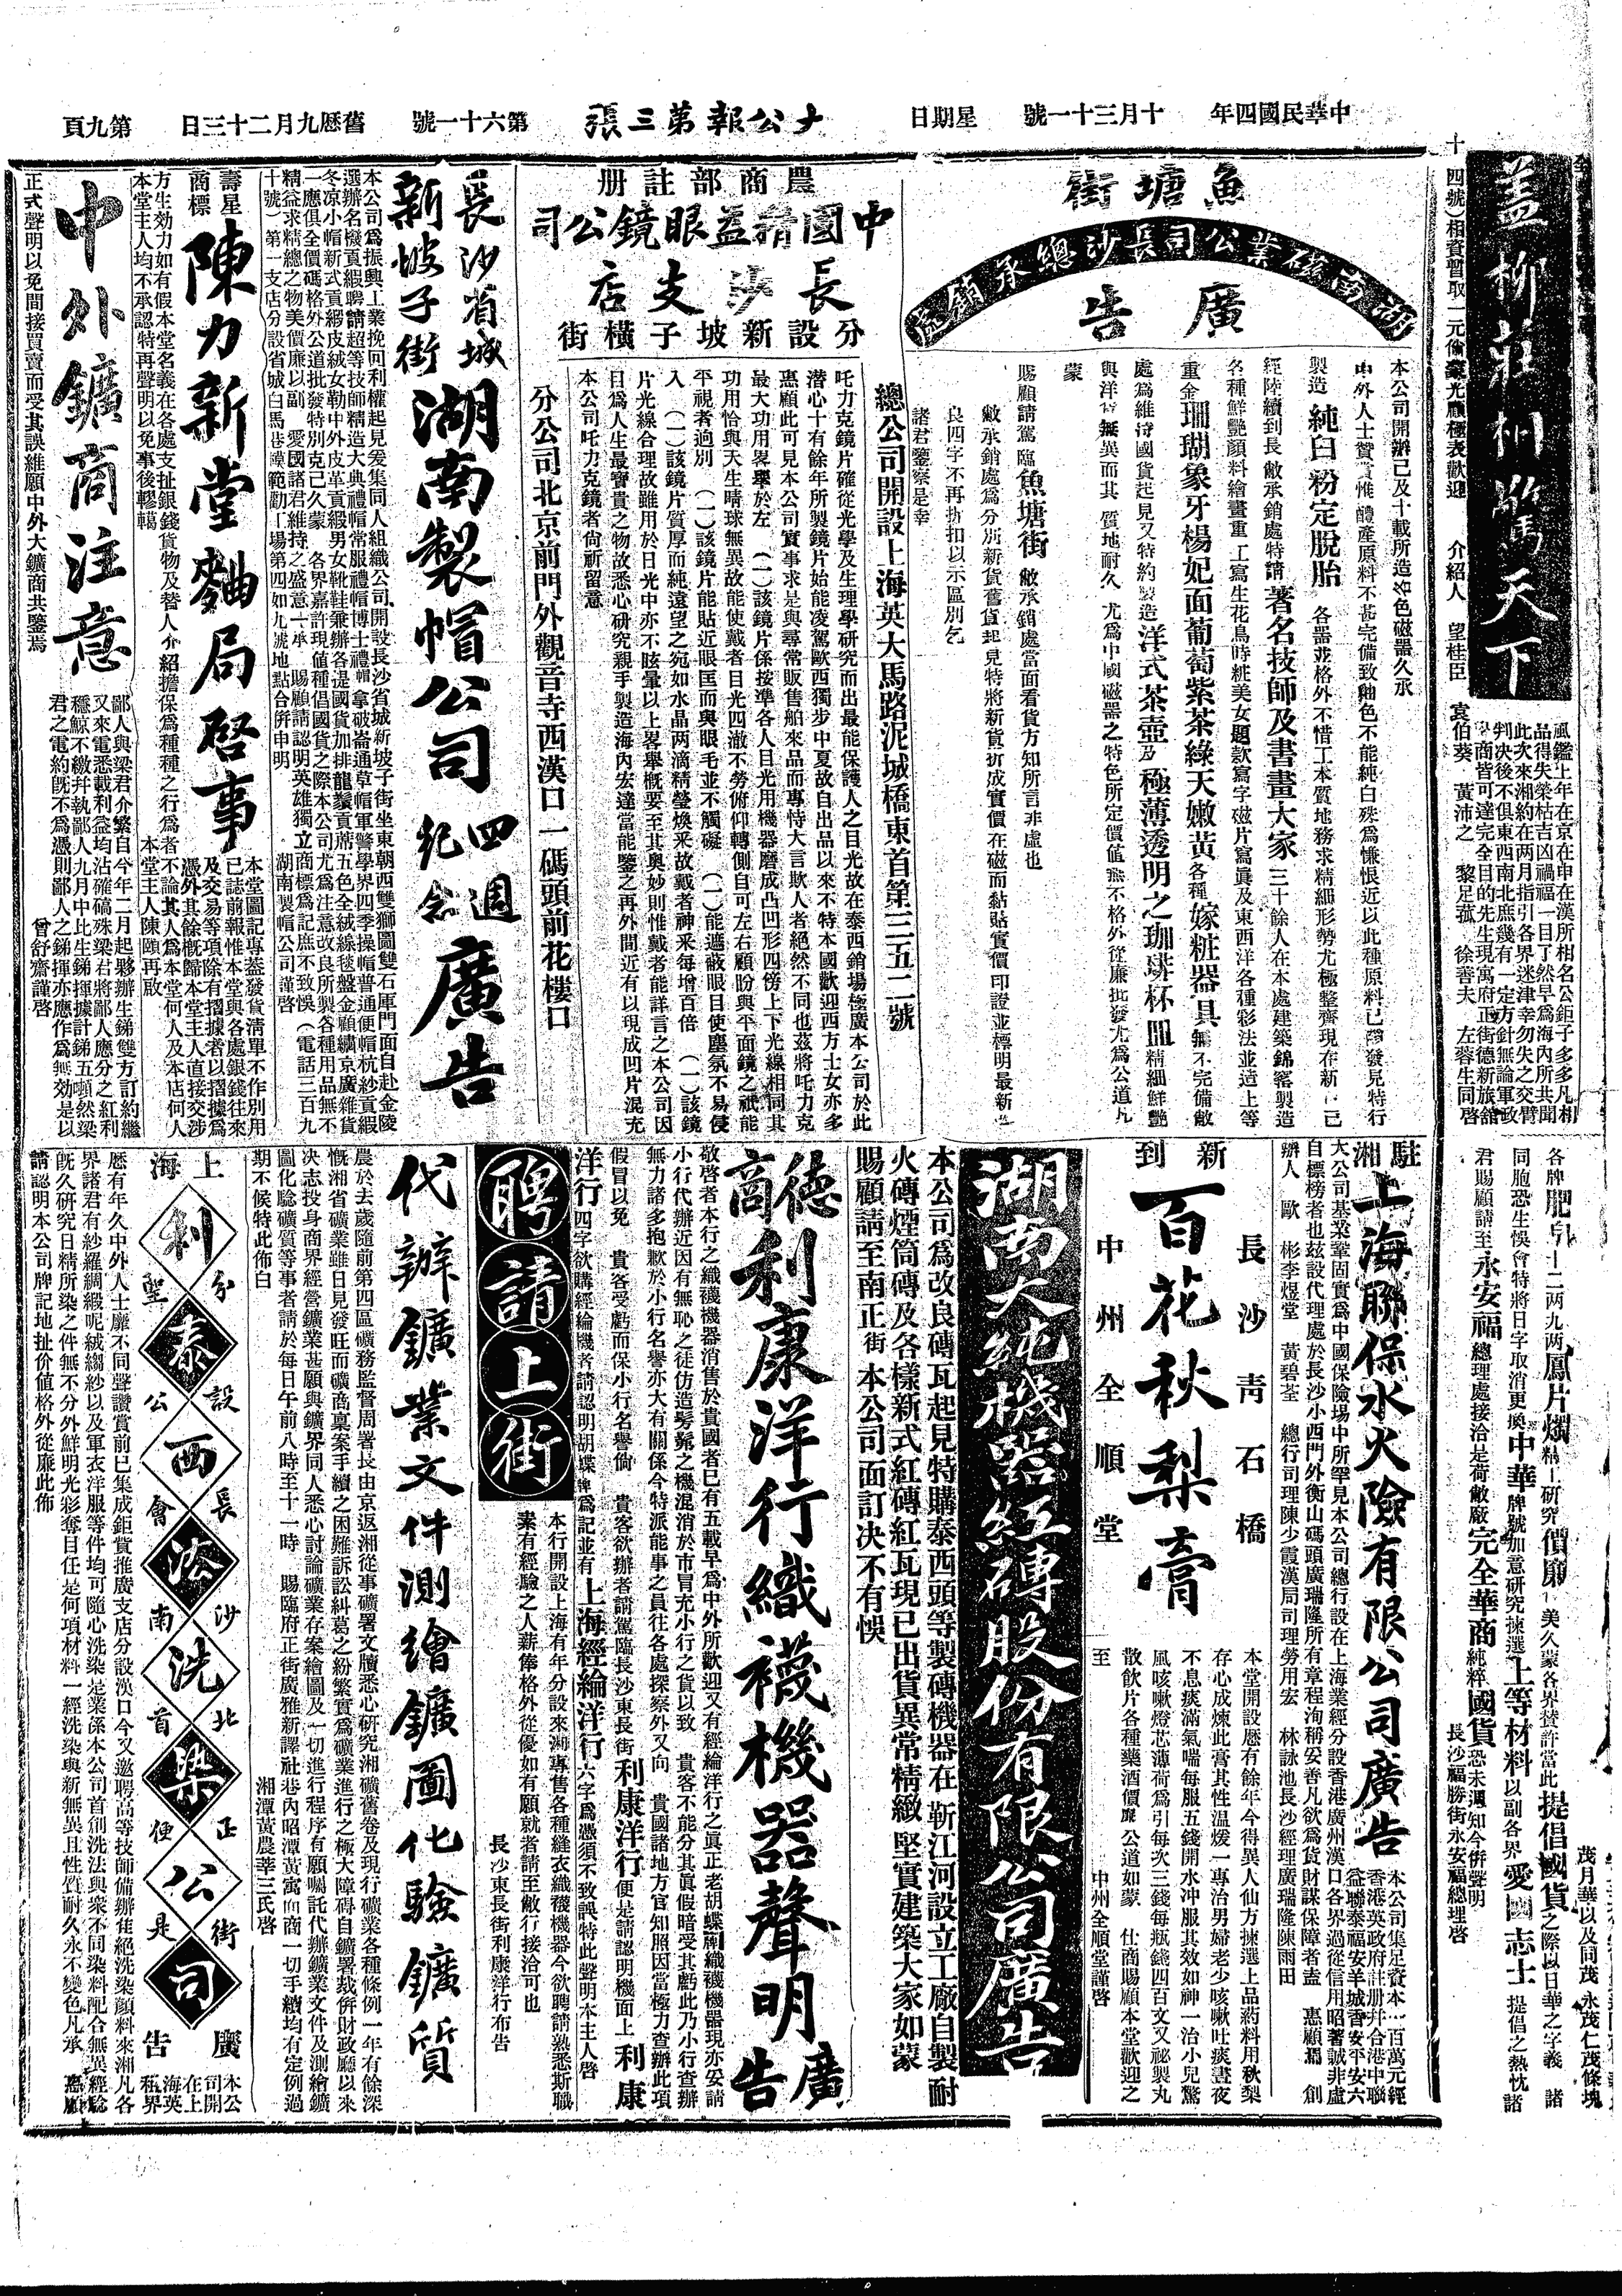 中華民國四年
十月三十一號
星期日
大公報第三張
第六十一號
舊曆九月二十三日
第九頁
蓋柳莊相驚天下
風鑑上年在京在申在漢所相名公鉅子多多凡相
品得失榮枯吉凶禍福一目了然早為海內所共聞
此次來湘約在兩月指引各界迷津幸勿失之交臂
判決後不俱東西南北庶幾有一定方針無論軍政
商皆可達完全目的先生現寓府正街德新旅舘
四號）相資暫取一元倘蒙光顧極表歡迎
介紹人
望桂臣
袁伯葵
黃沛之
黎足菰
徐善夫
左蓉生同啓
魚塘街
湖南磁業公司長沙總承銷處
廣告
本公司開辦已及十載所造各色磁器久承
中外人士贊賞惟醴產原料不甚完備致釉色不能純白殊為慊恨近以此種原料已發見特行
製造純白粉定脫胎各器並格外不惜工本質地務求精細形勢尤極整齊現在新
經陸續到長敝承銷處特請著名技師及書畫大家三十餘人在本處建築錦窰製造
各種鮮艷顏料繪畫重工寫生花鳥時粧美女題款寫字磁片寫眞及東西洋各種彩法並造上等
重金珊瑚象牙楊妃面葡萄紫茶綠天嫩黃各種嫁粧器具無不完備敝
處為維持國貨起見又特約製造洋式茶壺及極薄透明之珈琲杯皿精細鮮艷
與洋貨無異而其質地耐久尤為中國磁器之特色所定價值無不格外從廉批發尤為公道凡
蒙
賜顧請駕臨魚塘街敝承銷處當面看貨方知所言非虛也
敝承銷處為分別新貨舊貨起見特將新貨折成實價在磁面黏貼實價印證並標明最新
良四字不再折扣以示區別乞
諸君鑒察是幸
農商部註册
中國精益眼鏡公司
長沙支店
分設新坡子橫街
總公司開設上海英大馬路泥城橋東首第三五二號
吒力克鏡片確從光學及生理學研究而出最能保護人之目光故在泰西銷場極廣本公司於此
潛心十有餘年所製鏡片始能凌駕歐西獨步中夏故自出品以來不特本國歡迎西方士女亦多
惠顧此可見本公司實事求是與尋常販售舶來品而專恃大言欺人者絕然不同也茲將吒力克
最大功用畧舉於左（一）該鏡片係按準各人目光用機器磨成凸凹形四傍上下光線相同其
功用恰與天生晴球無異故能使戴者目光四澈不勞俯仰轉側自可左右顧盼與平面鏡之祇能
平視者逈別（一）該鏡片能貼近眼匡而與眼毛並不觸礙（一）能遮蔽眼目使塵氛不易侵
入（一）該鏡片質厚而純遠望之宛如水晶兩滴精瑩煥釆故戴者神釆每增百倍（一）該鏡
片光線合理故雖用於日光中亦不眩暈以上畧舉概要至其奧妙則惟戴者能詳言之本公司因
目為人生最寶貴之物故悉心研究親手製造海內宏達當能鑒之再外間近有以現成凹片混充
本公司吒力克鏡者尙祈留意
分公司北京前門外觀音寺西漢口一碼頭前花樓口
長沙省城
新坡子街
湖南製帽公司
四週
紀念
廣告
本公司為振興工業挽回利權起見爰集同人組織公司開設長沙省城新坡子街坐東朝西雙獅圖雙石庫門面自赴金陵
選辦名機貢緞聘請超等技師精造大典禮帽常服禮帽博士禮帽拿破崙通草帽軍警學界四季操帽普通便帽杭紗貢緞
冬凉小帽新式貢繆皮絨女勒中外皮革貢緞男女靴鞋兼辦各是國貨加排龍鬚貢蓆五色全絨線毯盤金顧繡京廣雜貨
一應俱全價碼格外公道批發特別克己久蒙各界嘉許現值種倡國貨之際本公司尤為注意改良所製各種用品無不
精益求精總之物美價廉以副愛國諸君維持之盛意一承賜顧請認明英雄獨立商標為記庶不致悞（電話三百九
十號）第一支店分設省城白馬巷模範勸工場第四如九號地點合併申明
湖南製帽公司謹啓
壽星
商標
陳力新堂麯局啓事
本堂圖記專蓋發貨清單不作別用
已誌前報惟本堂與各處銀錢往來
及交易等項除有摺據者以摺據為
憑外其餘概歸本堂主人直接交涉
不論其人為本堂何人及本店何人
本堂主人陳頤再啟
方生効力如有假本堂名義在各處支扯銀錢貨物及替人介紹擔保為種種之行為者
本堂主人均不承認特再聲明以免事後轇轕
中外鑛商注意
鄙人與梁君介繁自今年二月起夥辦生銻雙方訂約繼
又來電悉載利益均沾確碻殊梁右將鄙人應分之紅利
穩鯨不繳并執鄙人九月中此生銻揮據計銻五噸然梁
君之電約旣不為憑則鄙人之銻揮亦應作為無効是以
正式聲明以免間接買賣而受其誤維願中外大鑛商共鑒焉
曾舒齋謹啓
各牌肥皂十二两九两鳳片燭精工研究價廉美久蒙各界賛許當此提倡國貨之際以日華之字義諸
同胞恐生悞會特將日字取消更換中華牌號加意研究揀選上等材料以副各界愛國志士提倡之熱忱諸
君賜顧請至永安福總理處接洽是荷敝廠完全華商純粹國貨恐未週知今併聲明
長沙福勝街永安福總理啓
茂月華以及同茂永茂仁茂條塊
駐湘
上海聯保水火險有限公司廣告
本公司集足資本一百萬元經
香港英政府註册并合港中聯
益聯泰福安羊城香安平安六
大公司基業鞏固實為中國保險場中所罕見本公司總行設在上海業經分設香港廣州漢口各界過從信用昭著誠非虛
自標榜者也玆設代理處於長沙小西門外衡山碼頭廣瑞隆所有章程洵稱妥善凡欲為貨財謀保障者盍惠顧焉創
辦人歐彬李煜堂黃碧荃總行司理陳少霞漢局司理勞用宏林詠池長沙經理廣瑞隆陳雨田
新到
百花秋梨膏
長沙青石橋
中州全順堂
本堂開設歷有餘年今得異人仙方揀選上品葯料用秋梨
存心成煉此膏其性温煖一專治男婦老少咳嗽吐痰晝夜
不息痰滿氣喘每服五錢開水冲服其效如神一治小兒驚
風咳嗽燈芯薄荷為引每次三錢每瓶錢四百文又祕製丸
散飲片各種藥酒價廉公道如蒙仕商賜顧本堂歡迎之
至
中州全順堂謹啓
湖南大純機器紅磚股份有限公司廣告
本公司為改良磚瓦起見特購泰西頭等製磚機器在靳江河設立工廠自製耐
火磚煙筒磚及各樣新式紅磚紅瓦現已出貨異常精緻堅實建築大家如蒙
賜顧請至南正街本公司面訂決不有悞
德商
利康洋行織襪機器聲明廣告
敬啓者本行之織襪機器消售於貴國者已有五載早為中外所歡迎又有經綸洋行之眞正老胡蝶牌織襪機器現亦妥請
小行代辦近因有無恥之徒仿造髣髴之機混消於市冒充小行之貨以致貴客不能分其眞假暗受其虧此乃小行查辦
無力諸多抱歉於小行名譽亦大有關係今特派能事之員往各處探察外又向貴國諸地方官知照因當極力查辦此項
假冒以免貴客受虧而保小行名譽倘貴客欲辦者請駕臨長沙東長街利康洋行便是請認明機面上利康
洋行四字欲購經綸機者請認明胡蝶牌為記並有上海經綸洋行六字為憑須不致誤特此聲明本主人啓
聘請上街
本行開設上海有年分設來湘專售各種縫衣織襪機器今欲聘請熟悉斯職
業有經驗之人薪俸格外從優如有願就者請至敝行接洽可也
長沙東長街利康洋行布告
代辦鑛業文件測繪鑛圖化驗鑛質
農於去歲隨前第四區礦務監督周署長由京返湘從事礦署文牘悉心研究湘礦舊卷及現行礦業各種條例一年有餘深
慨湘省礦業雖日見發旺而礦商稟案手續之困難訴訟糾葛之紛繁實為礦業進行之極大障碍自鑛署裁併財政廳以來
決志投身商界經營鑛業甚願與鑛界同人悉心討論礦業存案繪圖及一切進行程序有願囑託代辦鑛業文件及測繪鑛
圖化騐礦質等事者請於每日午前八時至十一時賜臨府正街廣雅新譯社巷內昭潭黃寓面商一切手續均有定例過
期不候特此佈白
湘潭黃農莘三氏啓
上海
利泰西法洗染公司
分設長沙北正街
聖公會南首便是
廣告
本公
司開
在上
海英
租界
歷有年久中外人士靡不同聲讚賞前已集成鉅貲推廣支店分設漢口今又邀聘高等技師備辦隹絕洗染顏料來湘凡各
界諸君有紗羅綢緞呢絨縐紗以及軍衣洋服等件均可隨心洗染是業係本公司首創洗法與衆不同染料配合無異經騐
旣久研究日精所染之件無不分外鮮明光彩奪目任是何項材料一經洗染與新無異且性質耐久永不變色凡承惠顧
請認明本公司牌記地扯价值格外從廉此佈